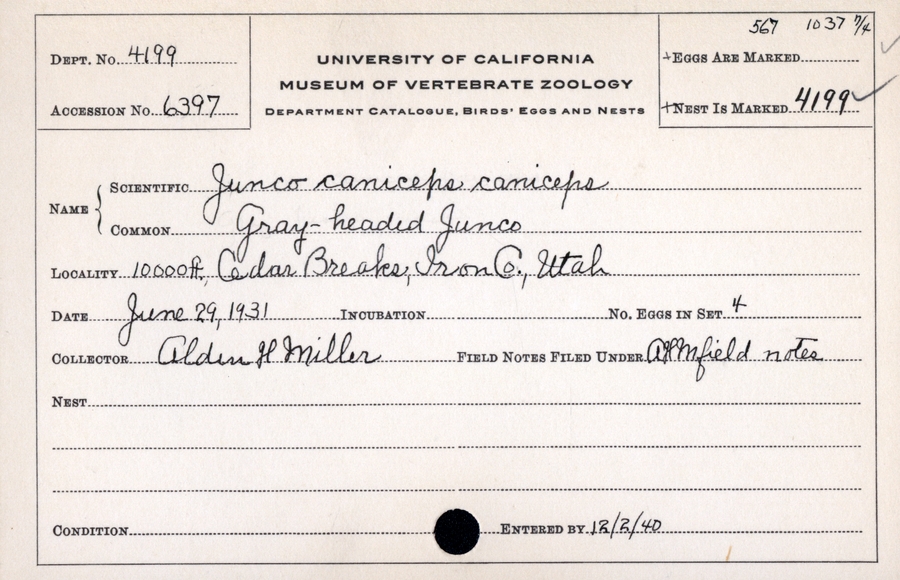 567 1037 7/4
DEPT. NO. 4199
UNIVERSITY OF CALIFORNIA
+EGGS ARE MARKED
MUSEUM OF VERTEBRATE ZOOLOGY
ACCESSION NO. 6397
DEPARTMENT CATALOGUE, BIRDS' EGGS AND NESTS
+NEST IS MARKED 4199
NAME { SCIENTIFIC Junco caniceps caniceps
COMMON Gray-headed Junco
LOCALITY 10000 ft, Cedar Breaks, Iron Co., Utah
DATE June 29, 1931 INCUBATION NO. EGGS IN SET 4
COLLECTOR Alden H Miller FIELD NOTES FILED UNDER AHM field notes
NEST
CONDITION ENTERED BY 12/2/40